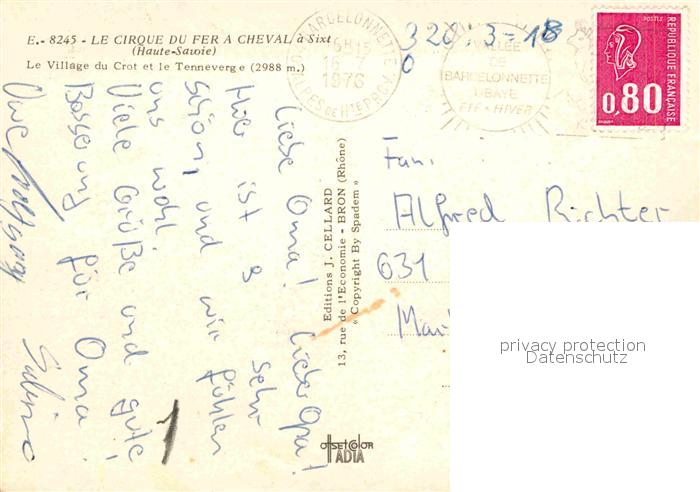 E.- 8245 - LE CIRQUE DU FER A CHEVAL à Sixt
(Haute-Savoie)
Le Village du Crot et le Tenneverge (2988 m.)
BARCELONNETTE
16-7
1976
ALPES DE Hte PROV.
VALLEE
DE
BARCELONNETTE
UBAYE
ETE - HIVER
POSTES
REPUBLIQUE FRANÇAISE
0,80
Liebe Oma! Lieber Opa!
Hier ist es sehr
schön, und wir fühlen
uns wohl.
Viele Grüße und gute
Besserung für Oma
Uwe Wolfgang Sabine
Editions J. CELLARD
13, rue de l'Economie - BRON (Rhône)
« Copyright By Spadem »
offsetcolor
ADIA
Fam.
Alfred Richter
631
privacy protection
Datenschutz